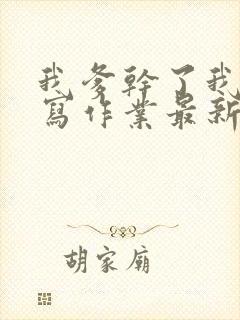 我爹幹了我
寫作業最新
胡家廟